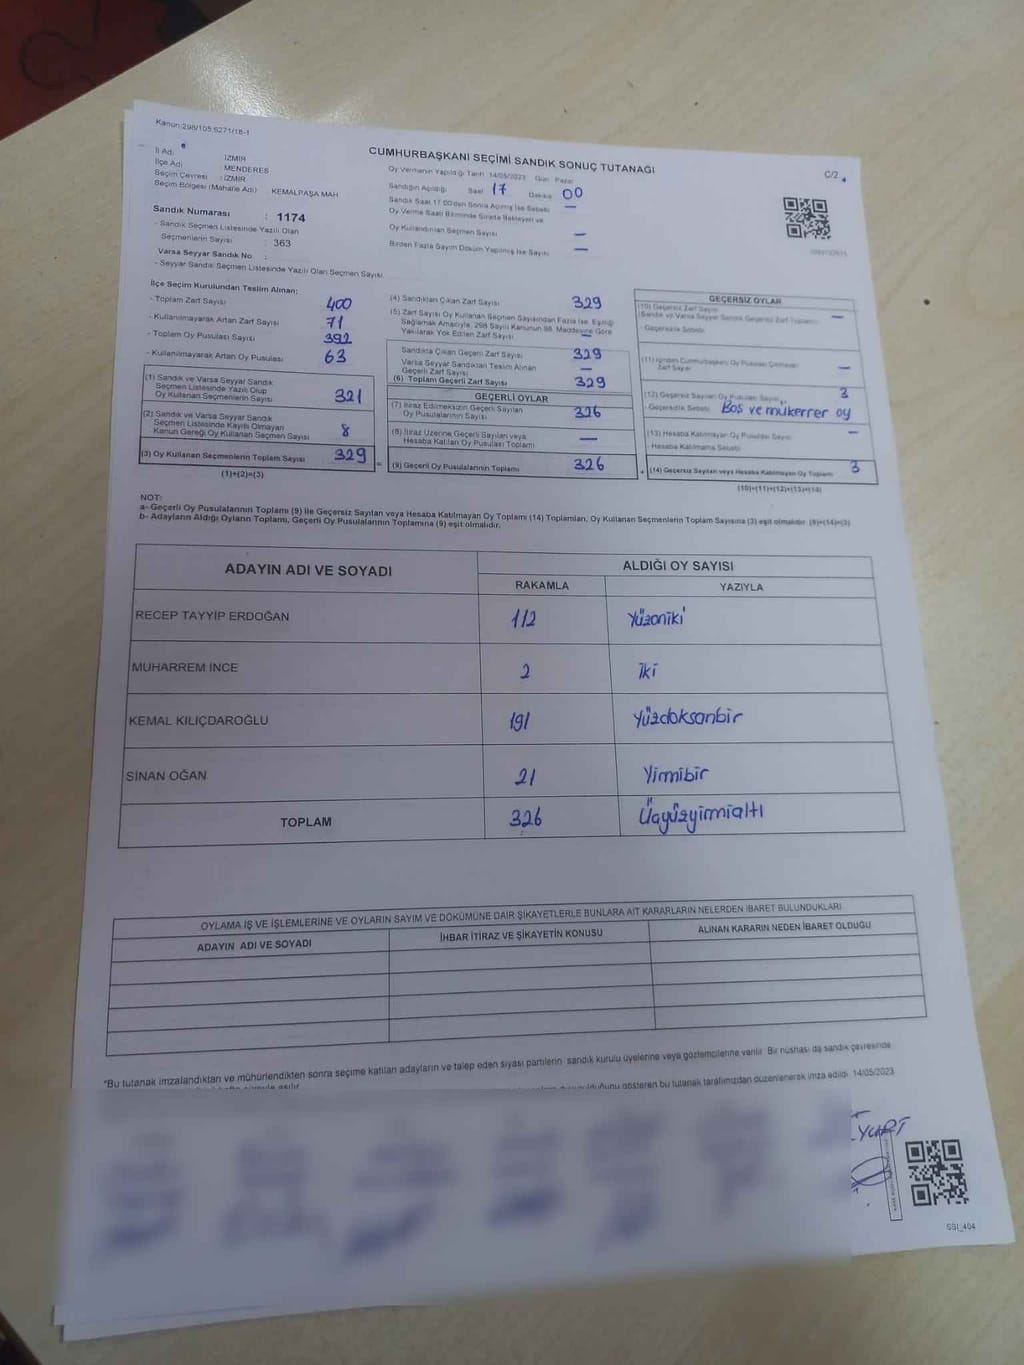 Kanun:298/105,6271/18-1
CUMHURBAŞKANI SEÇİMİ SANDIK SONUÇ TUTANAĞI
C/2
İl Adı : İZMİR
İlçe Adı : MENDERES
Seçim Çevresi : İZMİR
Seçim Bölgesi (Mahalle Adı) KEMALPAŞA MAH
Sandık Numarası : 1174
- Sandık Seçmen Listesinde Yazılı Olan
Seçmenlerin Sayısı : 363
Varsa Seyyar Sandık No :
- Seyyar Sandık Seçmen Listesinde Yazılı Olan Seçmen Sayısı
Oy Vermenin Yapıldığı Tarih 14/05/2023 Gün Pazar
Sandığın Açıldığı Saat 17 Dakika 00
Sandık Saat 17:00'den Sonra Açılmış İse Sebebi —
Oy Verme Saati Bitiminde Sırada Bekleyen ve
Oy Kullandırılan Seçmen Sayısı —
Birden Fazla Sayım Döküm Yapılmış İse Sayısı —
İlçe Seçim Kurulundan Teslim Alınan:
- Toplam Zarf Sayısı 400
- Kullanılmayarak Artan Zarf Sayısı 71
- Toplam Oy Pusulası Sayısı 392
- Kullanılmayarak Artan Oy Pusulası 63
(1) Sandık ve Varsa Seyyar Sandık
Seçmen Listesinde Yazılı Olup
Oy Kullanan Seçmenlerin Sayısı 321
(2) Sandık ve Varsa Seyyar Sandık
Seçmen Listesinde Kayıtlı Olmayan
Kanun Gereği Oy Kullanan Seçmen Sayısı 8
(3) Oy Kullanan Seçmenlerin Toplam Sayısı 329
(1)+(2)=(3)
(4) Sandıktan Çıkan Zarf Sayısı 329
(5) Zarf Sayısı Oy Kullanan Seçmen Sayısından Fazla İse, Eşitliği
Sağlamak Amacıyla, 298 Sayılı Kanunun 98. Maddesine Göre
Yakılarak Yok Edilen Zarf Sayısı —
Sandıkta Çıkan Geçerli Zarf Sayısı 329
Varsa Seyyar Sandıktan Teslim Alınan
Geçerli Zarf Sayısı —
(6) Toplam Geçerli Zarf Sayısı 329
GEÇERLİ OYLAR
(7) İtiraz Edilmeksizin Geçerli Sayılan
Oy Pusulalarının Sayısı 326
(8) İtiraz Üzerine Geçerli Sayılan veya
Hesaba Katılan Oy Pusulası Toplamı —
(9) Geçerli Oy Pusulalarının Toplamı 326
GEÇERSİZ OYLAR
(10) Geçersiz Zarf Sayısı
(Sandık ve Varsa Seyyar Sandık Geçersiz Zarf Toplamı) —
Geçersizlik Sebebi
(11) İçinden Cumhurbaşkanı Oy Pusulası Çıkmayan
Zarf Sayısı —
(12) Geçersiz Sayılan Oy Pusulası Sayısı 3
Geçersizlik Sebebi Boş ve mükerrer oy
(13) Hesaba Katılmayan Oy Pusulası Sayısı —
Hesaba Katılmama Sebebi
(14) Geçersiz Sayılan veya Hesaba Katılmayan Oy Toplamı 3
(10)+(11)+(12)+(13)=(14)
NOT:
a- Geçerli Oy Pusulalarının Toplamı (9) ile Geçersiz Sayılan veya Hesaba Katılmayan Oy Toplamı (14) Toplamları, Oy Kullanan Seçmenlerin Toplam Sayısına (3) eşit olmalıdır. (9)+(14)=(3)
b- Adayların Aldığı Oyların Toplamı, Geçerli Oy Pusulalarının Toplamına (9) eşit olmalıdır.
ADAYIN ADI VE SOYADI ALDIĞI OY SAYISI
RAKAMLA YAZIYLA
RECEP TAYYİP ERDOĞAN 112 Yüzoniki
MUHARREM İNCE 2 İki
KEMAL KILIÇDAROĞLU 191 Yüzdoksanbir
SİNAN OĞAN 21 Yirmibir
TOPLAM 326 Üçyüzyirmialtı
OYLAMA İŞ VE İŞLEMLERİNE VE OYLARIN SAYIM VE DÖKÜMÜNE DAİR ŞİKAYETLERLE BUNLARA AİT KARARLARIN NELERDEN İBARET BULUNDUKLARI
ADAYIN ADI VE SOYADI İHBAR İTİRAZ VE ŞİKAYETİN KONUSU ALINAN KARARIN NEDEN İBARET OLDUĞU
*Bu tutanak imzalandıktan ve mühürlendikten sonra seçime katılan adayların ve talep eden siyasi partilerin sandık kurulu üyelerine veya gözlemcilerine verilir. Bir nüshası da sandık çevresinde
gösteren bu tutanak tarafımızdan düzenlenerek imza edildi. 14/05/2023
YURT
SSI_404